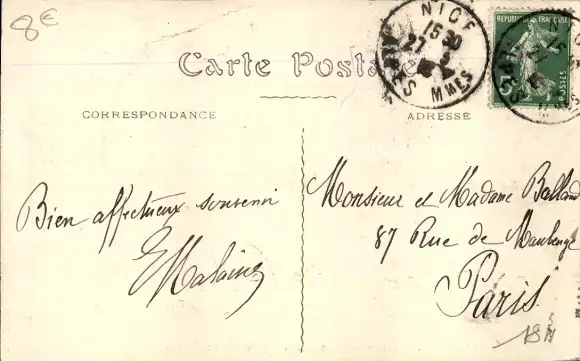 8€
NICE
15 30
27 3
ALPES MMES
REPUBLIQUE FRANÇAISE
5
POSTES
Carte Postale
CORRESPONDANCE
ADRESSE
Bien affectueux souvenir
Monsieur et Madame Balland
87 Rue de Maubeuge
Paris